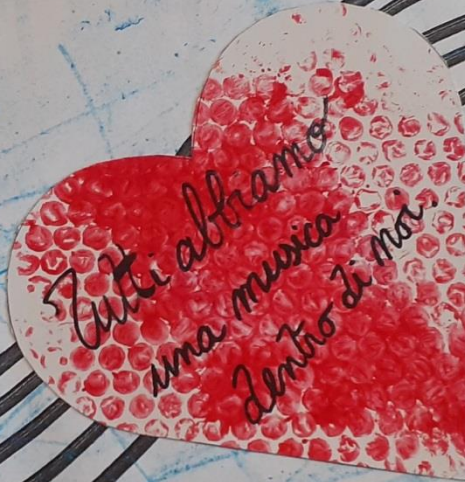 Tutti abbiamo
una musica
dentro di noi.